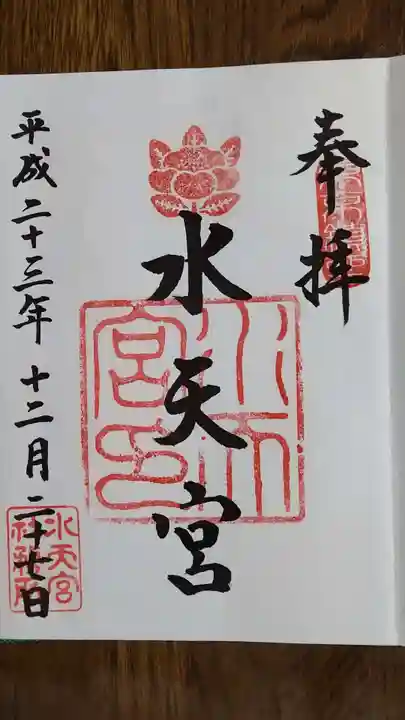 奉拝
水天宮
平成二十三年十二月二十七日
水天宮印
水天宮
社務所